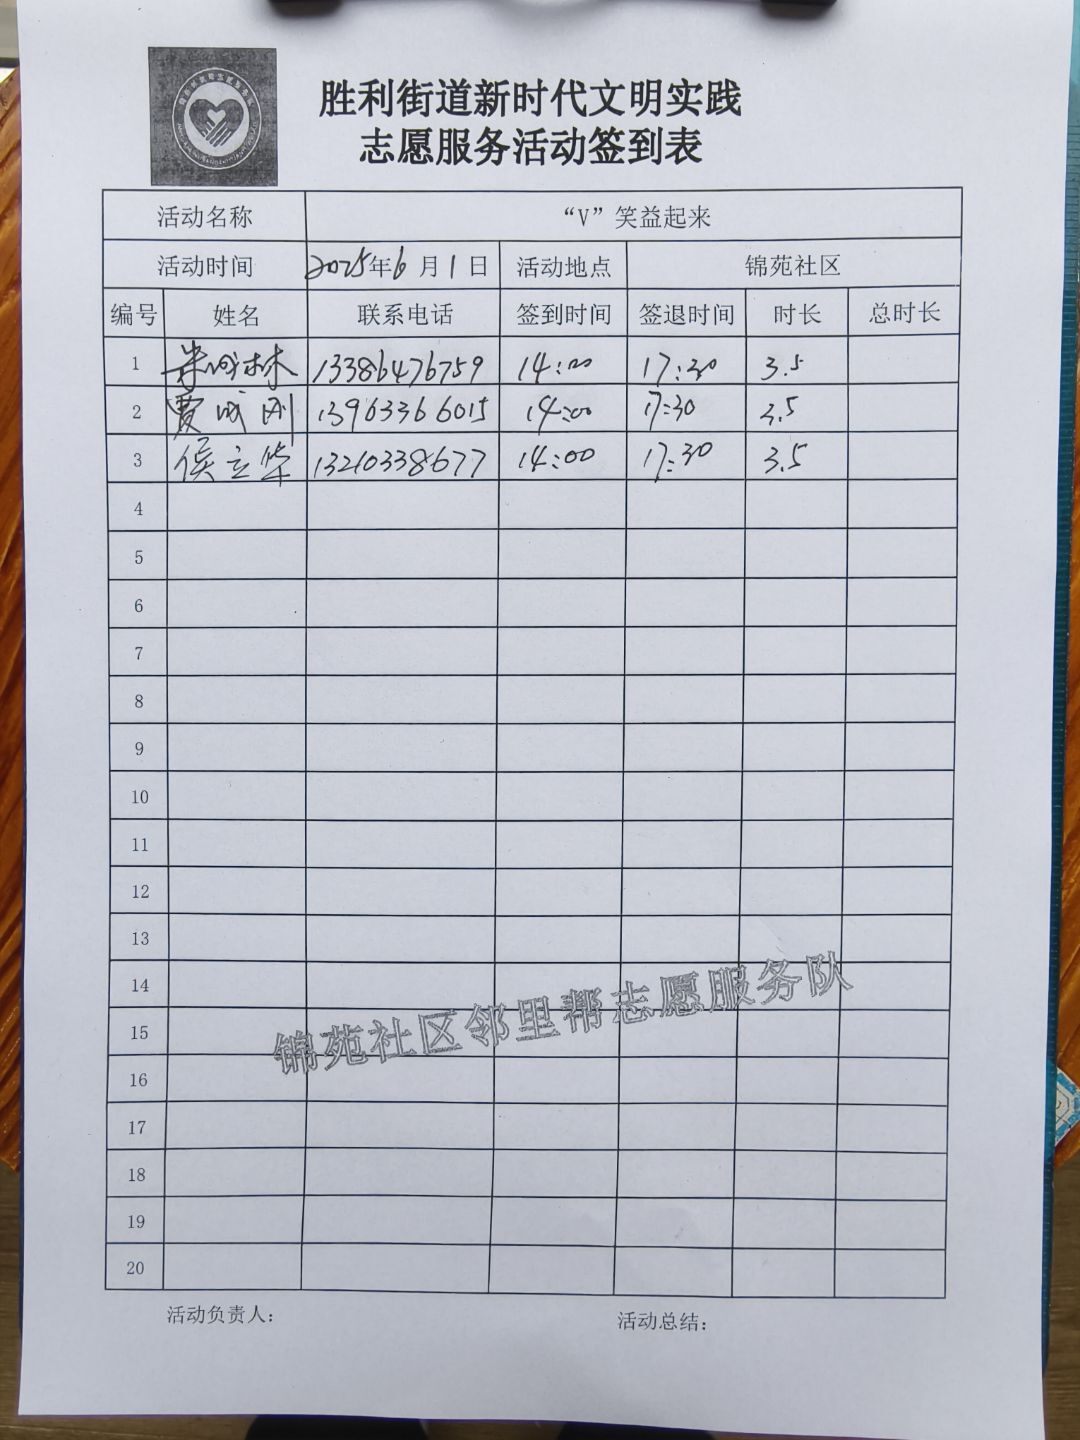 胜利街道新时代文明实践
志愿服务活动签到表
活动名称 “V”笑益起来
活动时间 2025年6月1日 活动地点 锦苑社区
编号 姓名 联系电话 签到时间 签退时间 时长 总时长
1 林 13386476759 14:00 17:30 3.5
2 贾成刚 13963366015 14:00 17:30 3.5
3 侯立华 13210338677 14:00 17:30 3.5
4
5
6
7
8
9
10
11
12
13
14
15
16
17
18
19
20
锦苑社区邻里帮志愿服务队
活动负责人: 活动总结: